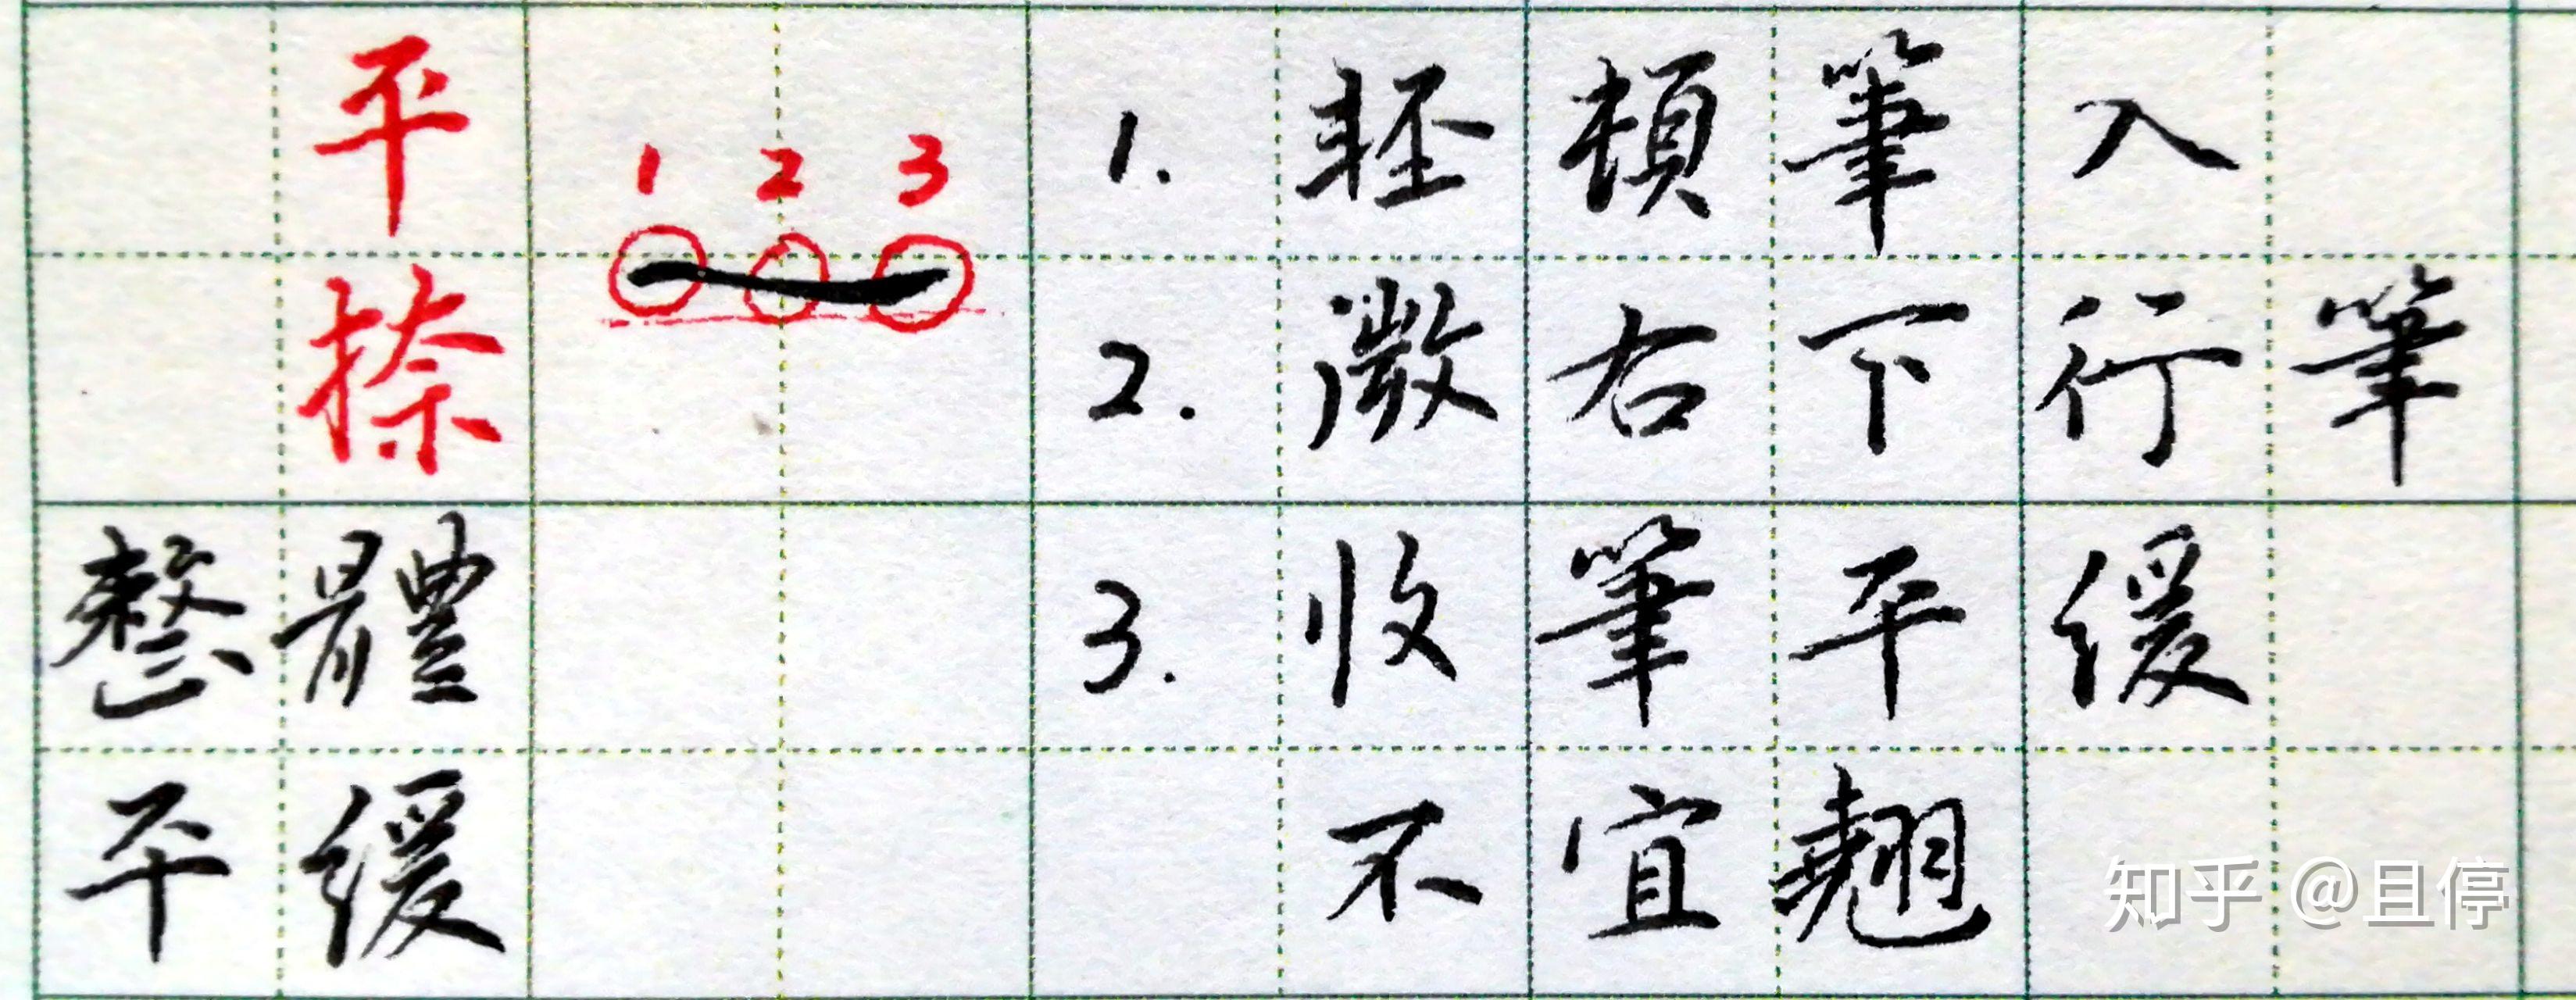 平捺
1 2 3
1. 輕頓筆入
2. 微右下行筆
整體平緩
3. 收筆平緩
不宜翹
知乎 @且停